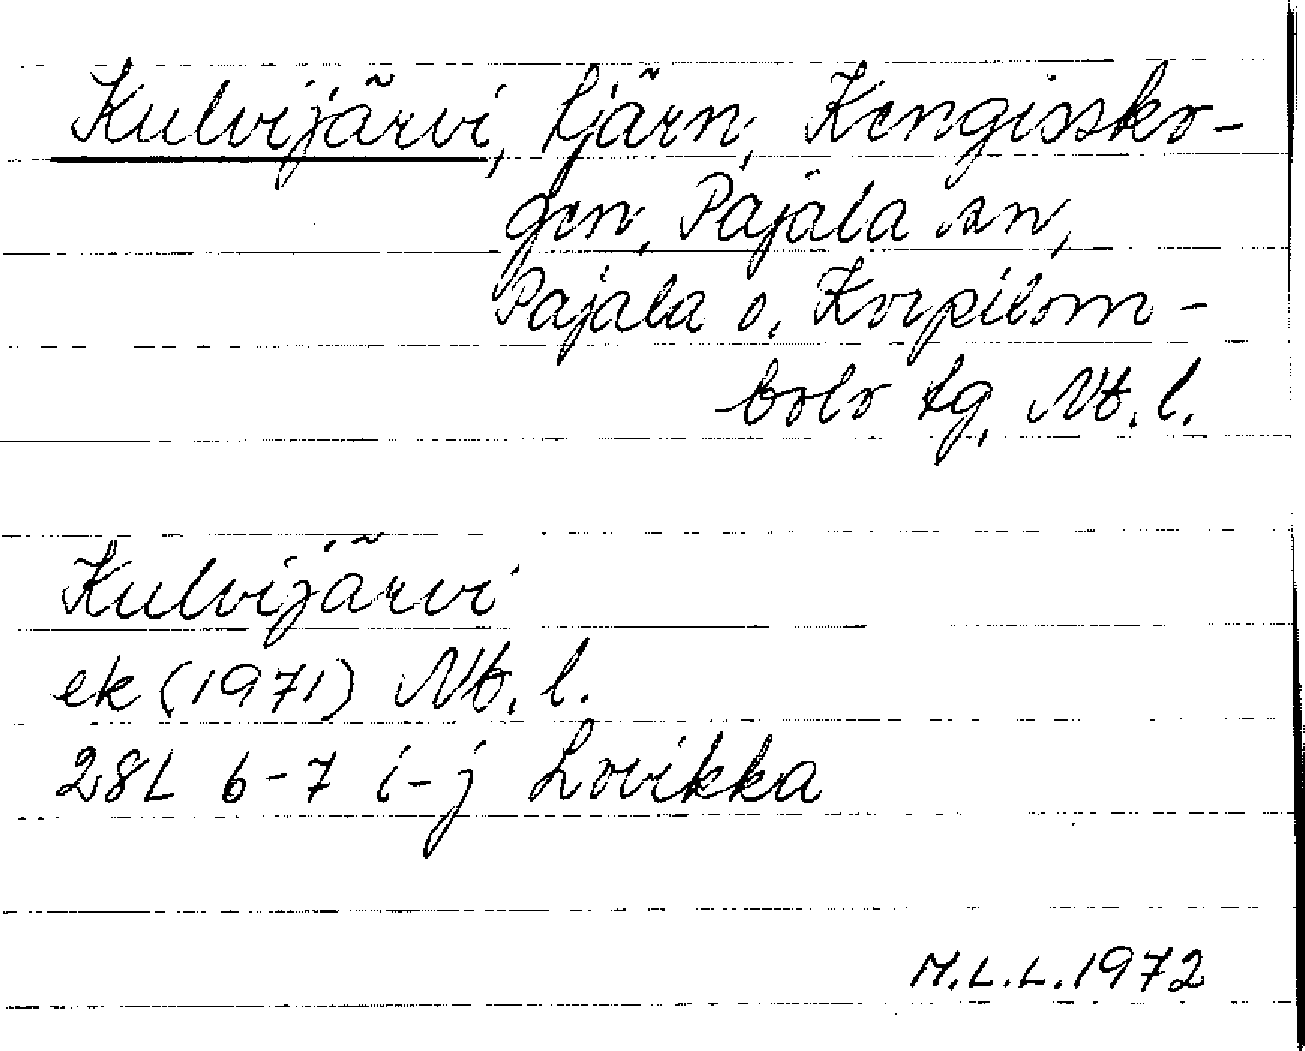 Kulvijärvi, tjärn, Kengissko-
gen, Pajala sn,
Pajala o. Korpilom-
bolo tg, Nb. l.
Kulvijärvi
ek (1971) Nb. l.
28L 6-7 i-j Lovikka
M.L.L. 1972